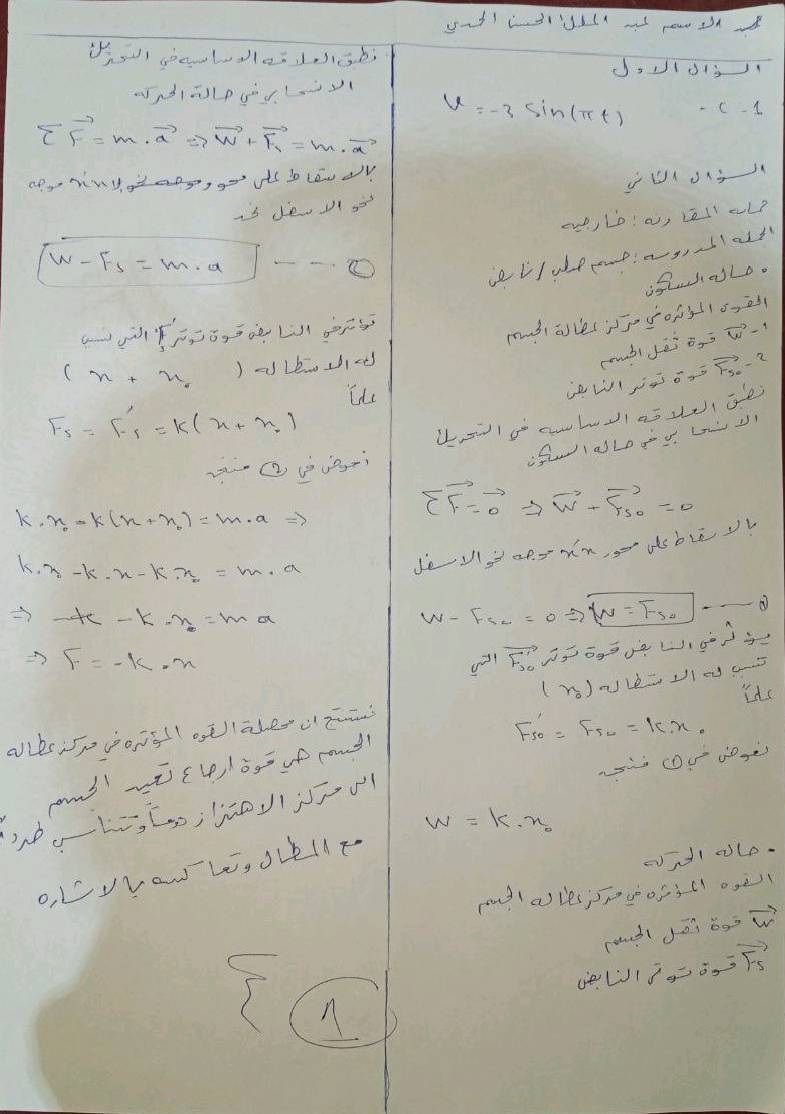 الاسم عبد الملك الحسن الحمدي
السؤال الاول
1 - c - v = -3 sin(πt)
السؤال الثاني
جملة المقارنة: خارجيه
الجمله المدروسه: جسم صلب / نابض
• حاله السكون
القوى المؤثره في مركز عطالة الجسم
1- W قوة ثقل الجسم
2- Fs0 قوة توتر النابض
نطبق العلاقه الاساسيه في التحريك
الانسحابي في حاله السكون
ΣF = 0 ⇒ W + Fs0 = 0
بالاسقاط على محور x'x موجه نحو الاسفل
W - Fs0 = 0 ⇒ W = Fs0 ---- ①
يؤثر في النابض قوة توتر F's0 التي
تسبب له الاستطاله (x0)
علماً
F's0 = Fs0 = k.x0
نعوض في ① فنجد
W = k.x0
• حاله الحركه
القوه المؤثره في مركز عطاله الجسم
W قوة ثقل الجسم
Fs قوة توتر النابض
نطبق العلاقه الاساسيه في التحريك
الانسحابي في حالة الحركه
ΣF = m.a ⇒ W + Fs = m.a
بالاسقاط على محور x'x موجه
نحو الاسفل نجد
W - Fs = m.a ---- ②
تؤثر في النابض قوة توتر F's التي تسبب
له الاستطاله (x + x0)
علماً
Fs = F's = k(x + x0)
نعوض في ② فنجد
k.x0 - k(x + x0) = m.a ⇒
k.x0 - k.x - k.x0 = m.a
⇒ - k.x0 = ma
⇒ F = -k.x
نستنتج ان محصلة القوه المؤثره في مركز عطاله
الجسم هي قوة ارجاع تعيد الجسم
الى مركز الاهتزاز دوماً وتتناسب طرداً
مع المطال وتعاكسه بالاشاره
1